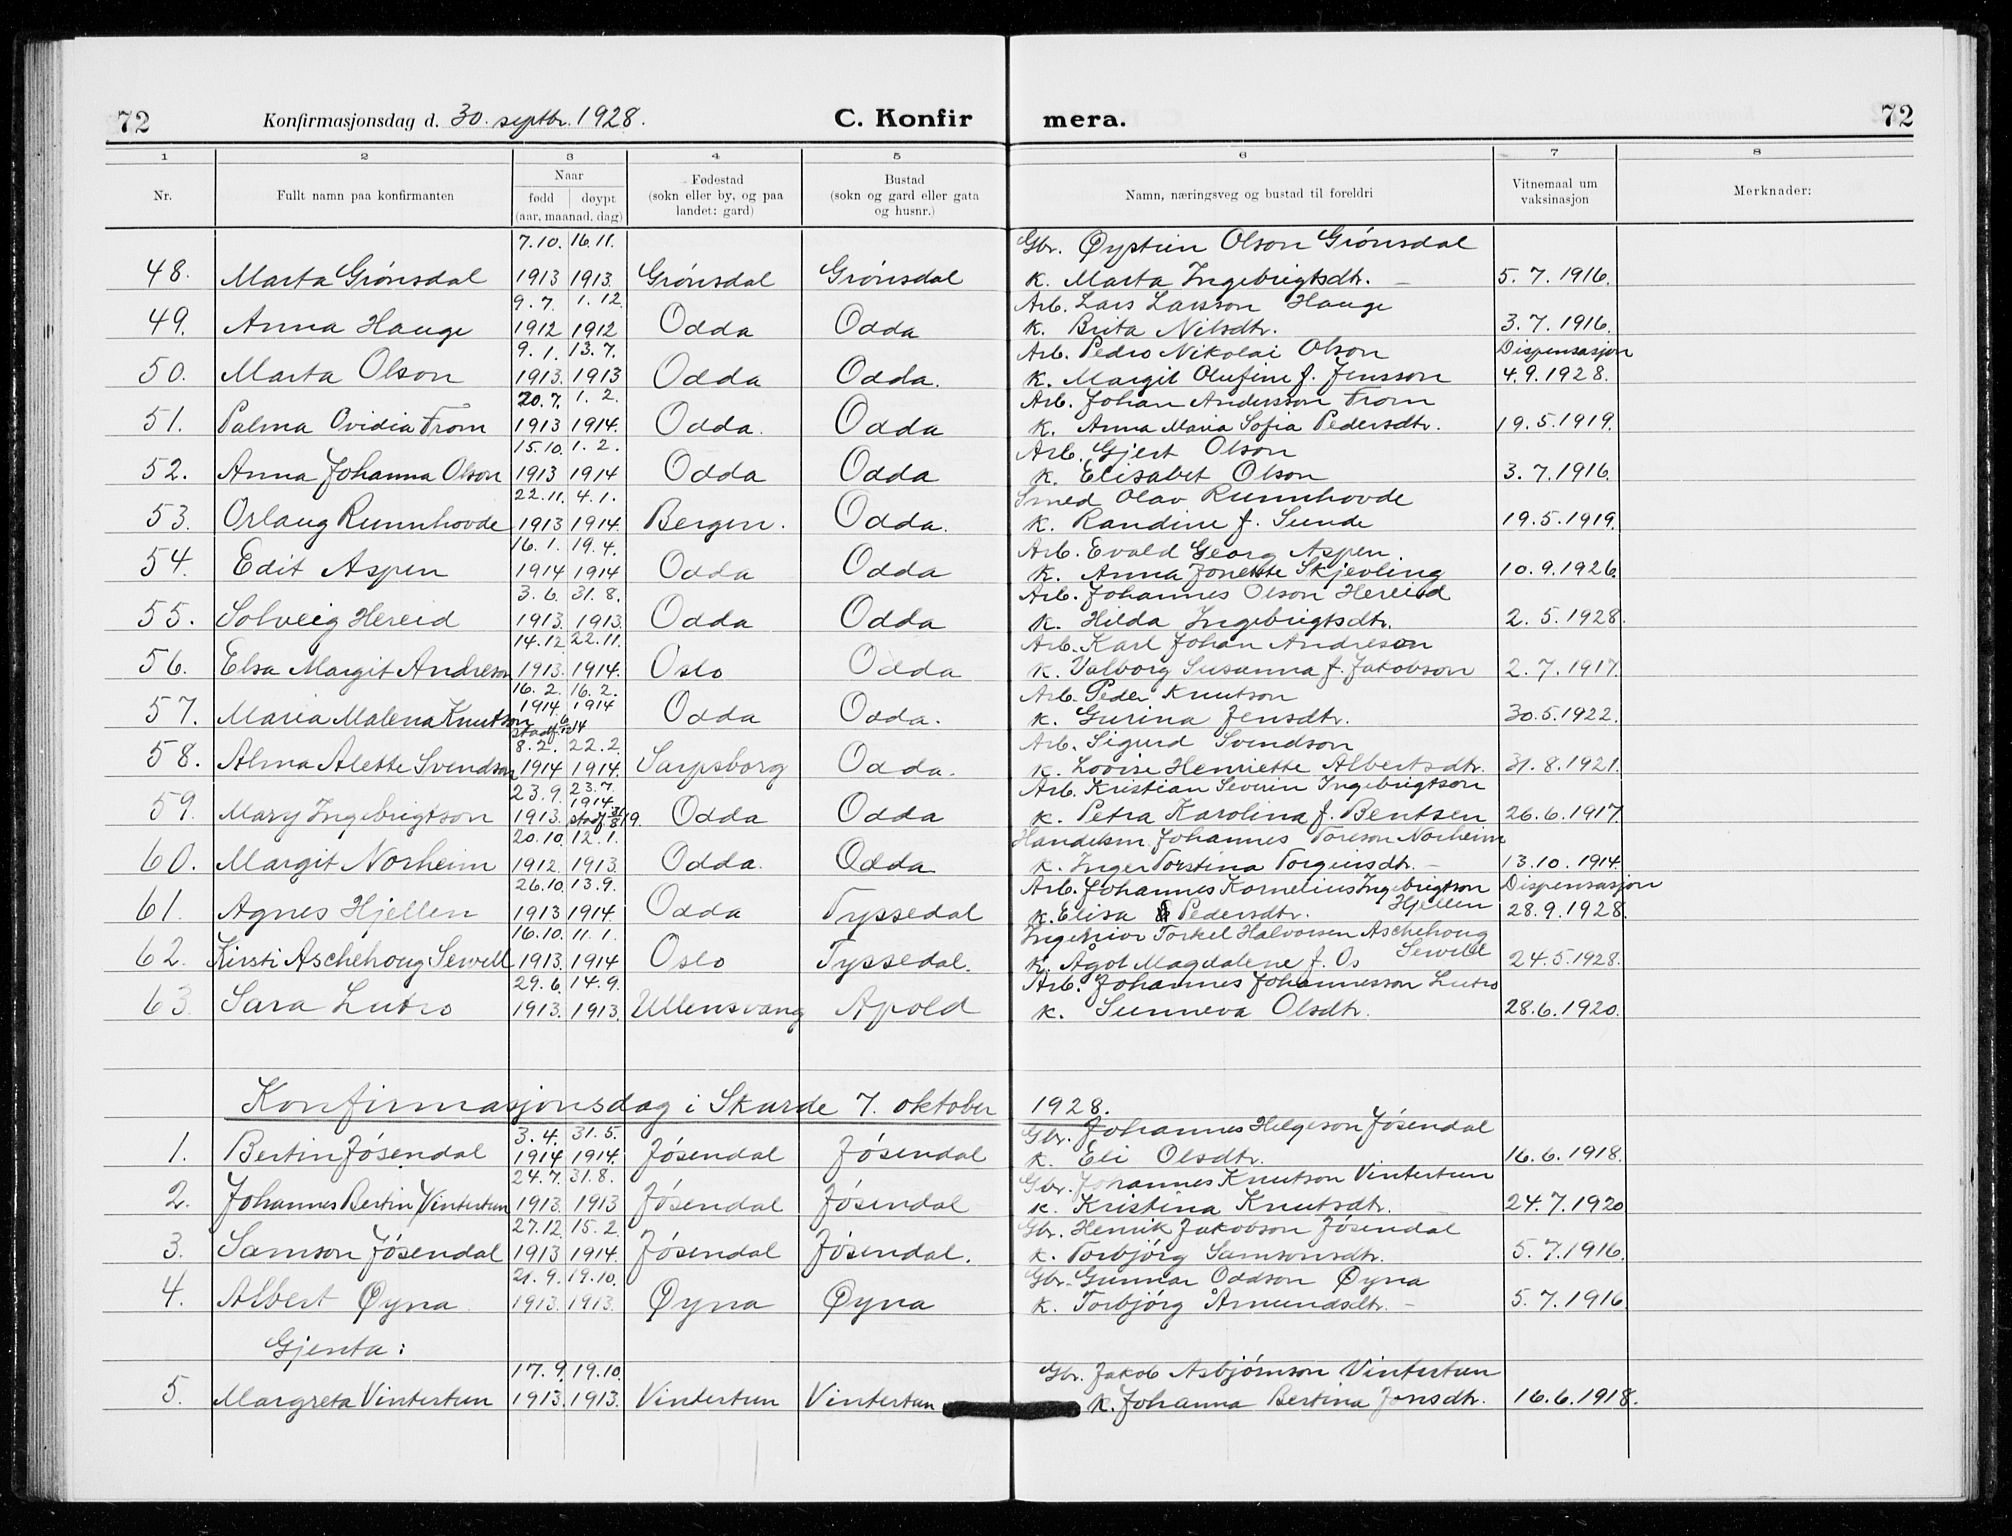 72 Konfirmasjonsdag d. 30. septbr. 1928. C. Konfir mera. 72
1 2 3 4 5 6 7 8
Nr. Fullt namn paa konfirmanten Naar fødd døypt (aar, maanad, dag) Fødestad (sokn eller by, og paa landet: gard) Bustad (sokn og gard eller gata og husnr.) Namn, næringsveg og bustad til foreldri Vitnemaal um vaksinasjon Merknader:
7.10. 16.11. Gbr. Øystein Olson Grónsdal
48. Marta Grónsdal 1913 1913. Grónsdal Grónsdal K. Marta Ingebrigtsdtr. 5.7.1916.
9.7. 1.12. Arb. Lars Larsson Hauge
49. Anna Hauge 1912 1912 Odda Odda K. Brita Nilsdtr. 3.7.1916.
9.1. 13.7. Arb. Pedro Nikolai Olson Dispensasjon
50. Marta Olson 1913. 1913 Odda Odda. K. Margit Olufine f. Jensson 4.9.1928.
20.7. 1.2. Arb. Johan Andersson From
51. Palma Ovidia From 1913 1914. Odda. Odda K. Anna Maria Sofia Pedersdtr. 19.5.1919.
15.10. 1.2. Arb. Gjert Olson
52. Anna Johanna Olson 1913 1914 Odda Odda K. Elisabet Olson 3.7.1916.
22.11. 4.1. Smed Olav Runnhovde
53. Orlaug Runnhovde 1913 1914. Bergen. Odda. K. Randine f. Sunde 19.5.1919.
16.1. 19.4. Arb. Evald Georg Aspen.
54. Edit Aspen 1914 1914 Odda Odda K. Anna Jonette Skjevling 10.9.1926.
3.6. 31.8. Arb. Johannes Olson Hereid
55. Solveig Hereid 1913. 1913. Odda Odda K. Hilda Ingebrigtsdtr. 2.5.1928.
14.12. 22.11. Arb. Karl Johan Andreson
56. Elsa Margit Andreson 1913. 1914. Oslo Odda K. Valborg Susanna f. Jakobson 2.7.1917.
16.2. 16.2. Arb. Peder Knutson
57. Maria Malena Knutson 1914. 1914 Odda Odda. K. Gurina Jensdtr. 30.5.1922.
8.2. 22.2. Arb. Sigurd Svendson
58. Alma Alette Svendson 1914 1914. Sarpsborg Odda. K. Lovise Henriette Albertsdtr. 31.8.1921.
23.9. 23.7. 1914 Arb. Kristian Severin Ingebrigtson
59. Mary Ingebrigtson 1913. stadf. 31/8 19. Odda Odda K. Petra Karolina f. Bentsen 26.6.1917.
20.10. 12.1. Handelsm. Johannes Toreson Norheim
60. Margit Norheim 1912. 1913. Odda. Odda K. Inger Torstina Torgeirsdtr. 13.10.1914.
26.10. 13.9. Arb. Johannes Kornelius Ingebrigtson Dispensasjon
61. Agnes Hjellen 1913 1914. Odda Tyssedal K. Elisa Pedersdtr. Hjellen 28.9.1928.
16.10. 11.1. Ingeniør Torkel Halvorsen Aschehoug
62. Kirsti Aschehoug Sewell 1913. 1914 Oslo Tyssedal. K. Ågot Magdalene f. Os Sewell 24.5.1928.
29.6. 14.9. Arb. Johannes Johannesson Lutro
63. Sara Lutro 1913. 1913. Ullensvang Apold K. Sunneva Olsdtr. 28.6.1920.
Konfirmasjonsdag i Skarde 7. oktober 1928.
3.4. 31.5. Gbr. Johannes Helgeson Jósendal
1. Bertin Jósendal 1914 1914. Jósendal Jósendal K. Eli Olsdtr. 16.6.1918.
24.7. 31.8. Gbr. Johannes Knutson Vintertun
2. Johannes Bertin Vintertun 1913. 1913 Jósendal Jósendal K. Kristina Knutsdtr. 24.7.1920
27.12. 15.2. Gbr. Henrik Jakobson Jósendal
3. Samson Jósendal 1913 1914. Jósendal Jósendal. K. Torbjórg Samsonsdtr. 5.7.1916.
21.9. 19.10. Gbr. Gunnar Oddson Øyna
4. Albert Øyna 1913. 1913. Øyna Øyna K. Torbjórg Åmundsdtr. 5.7.1916.
Gjenta:
17.9. 19.10. Gbr. Jakob Asbjórnson Vintertun
5. Margreta Vintertun 1913. 1913. Vintertun Vintertun K. Johanna Bertina Jonsdtr. 16.6.1918.